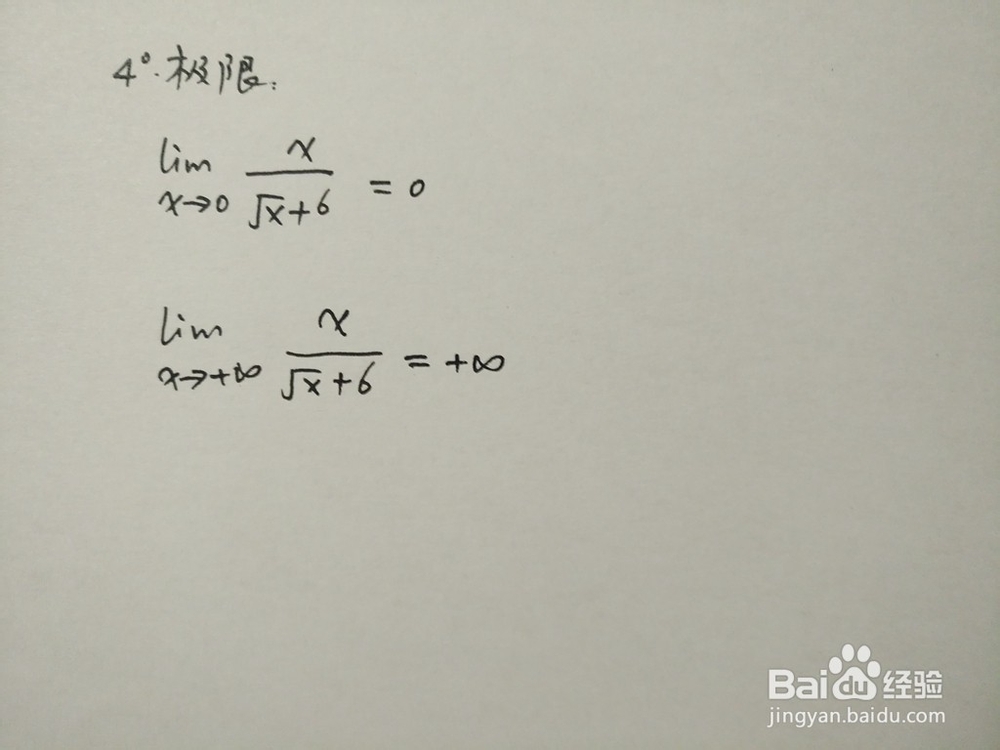 4°.极限:
lim x→0 x/(√x+6) = 0
lim x→+∞ x/(√x+6) = +∞
Baidu经验
jingyan.baidu.com